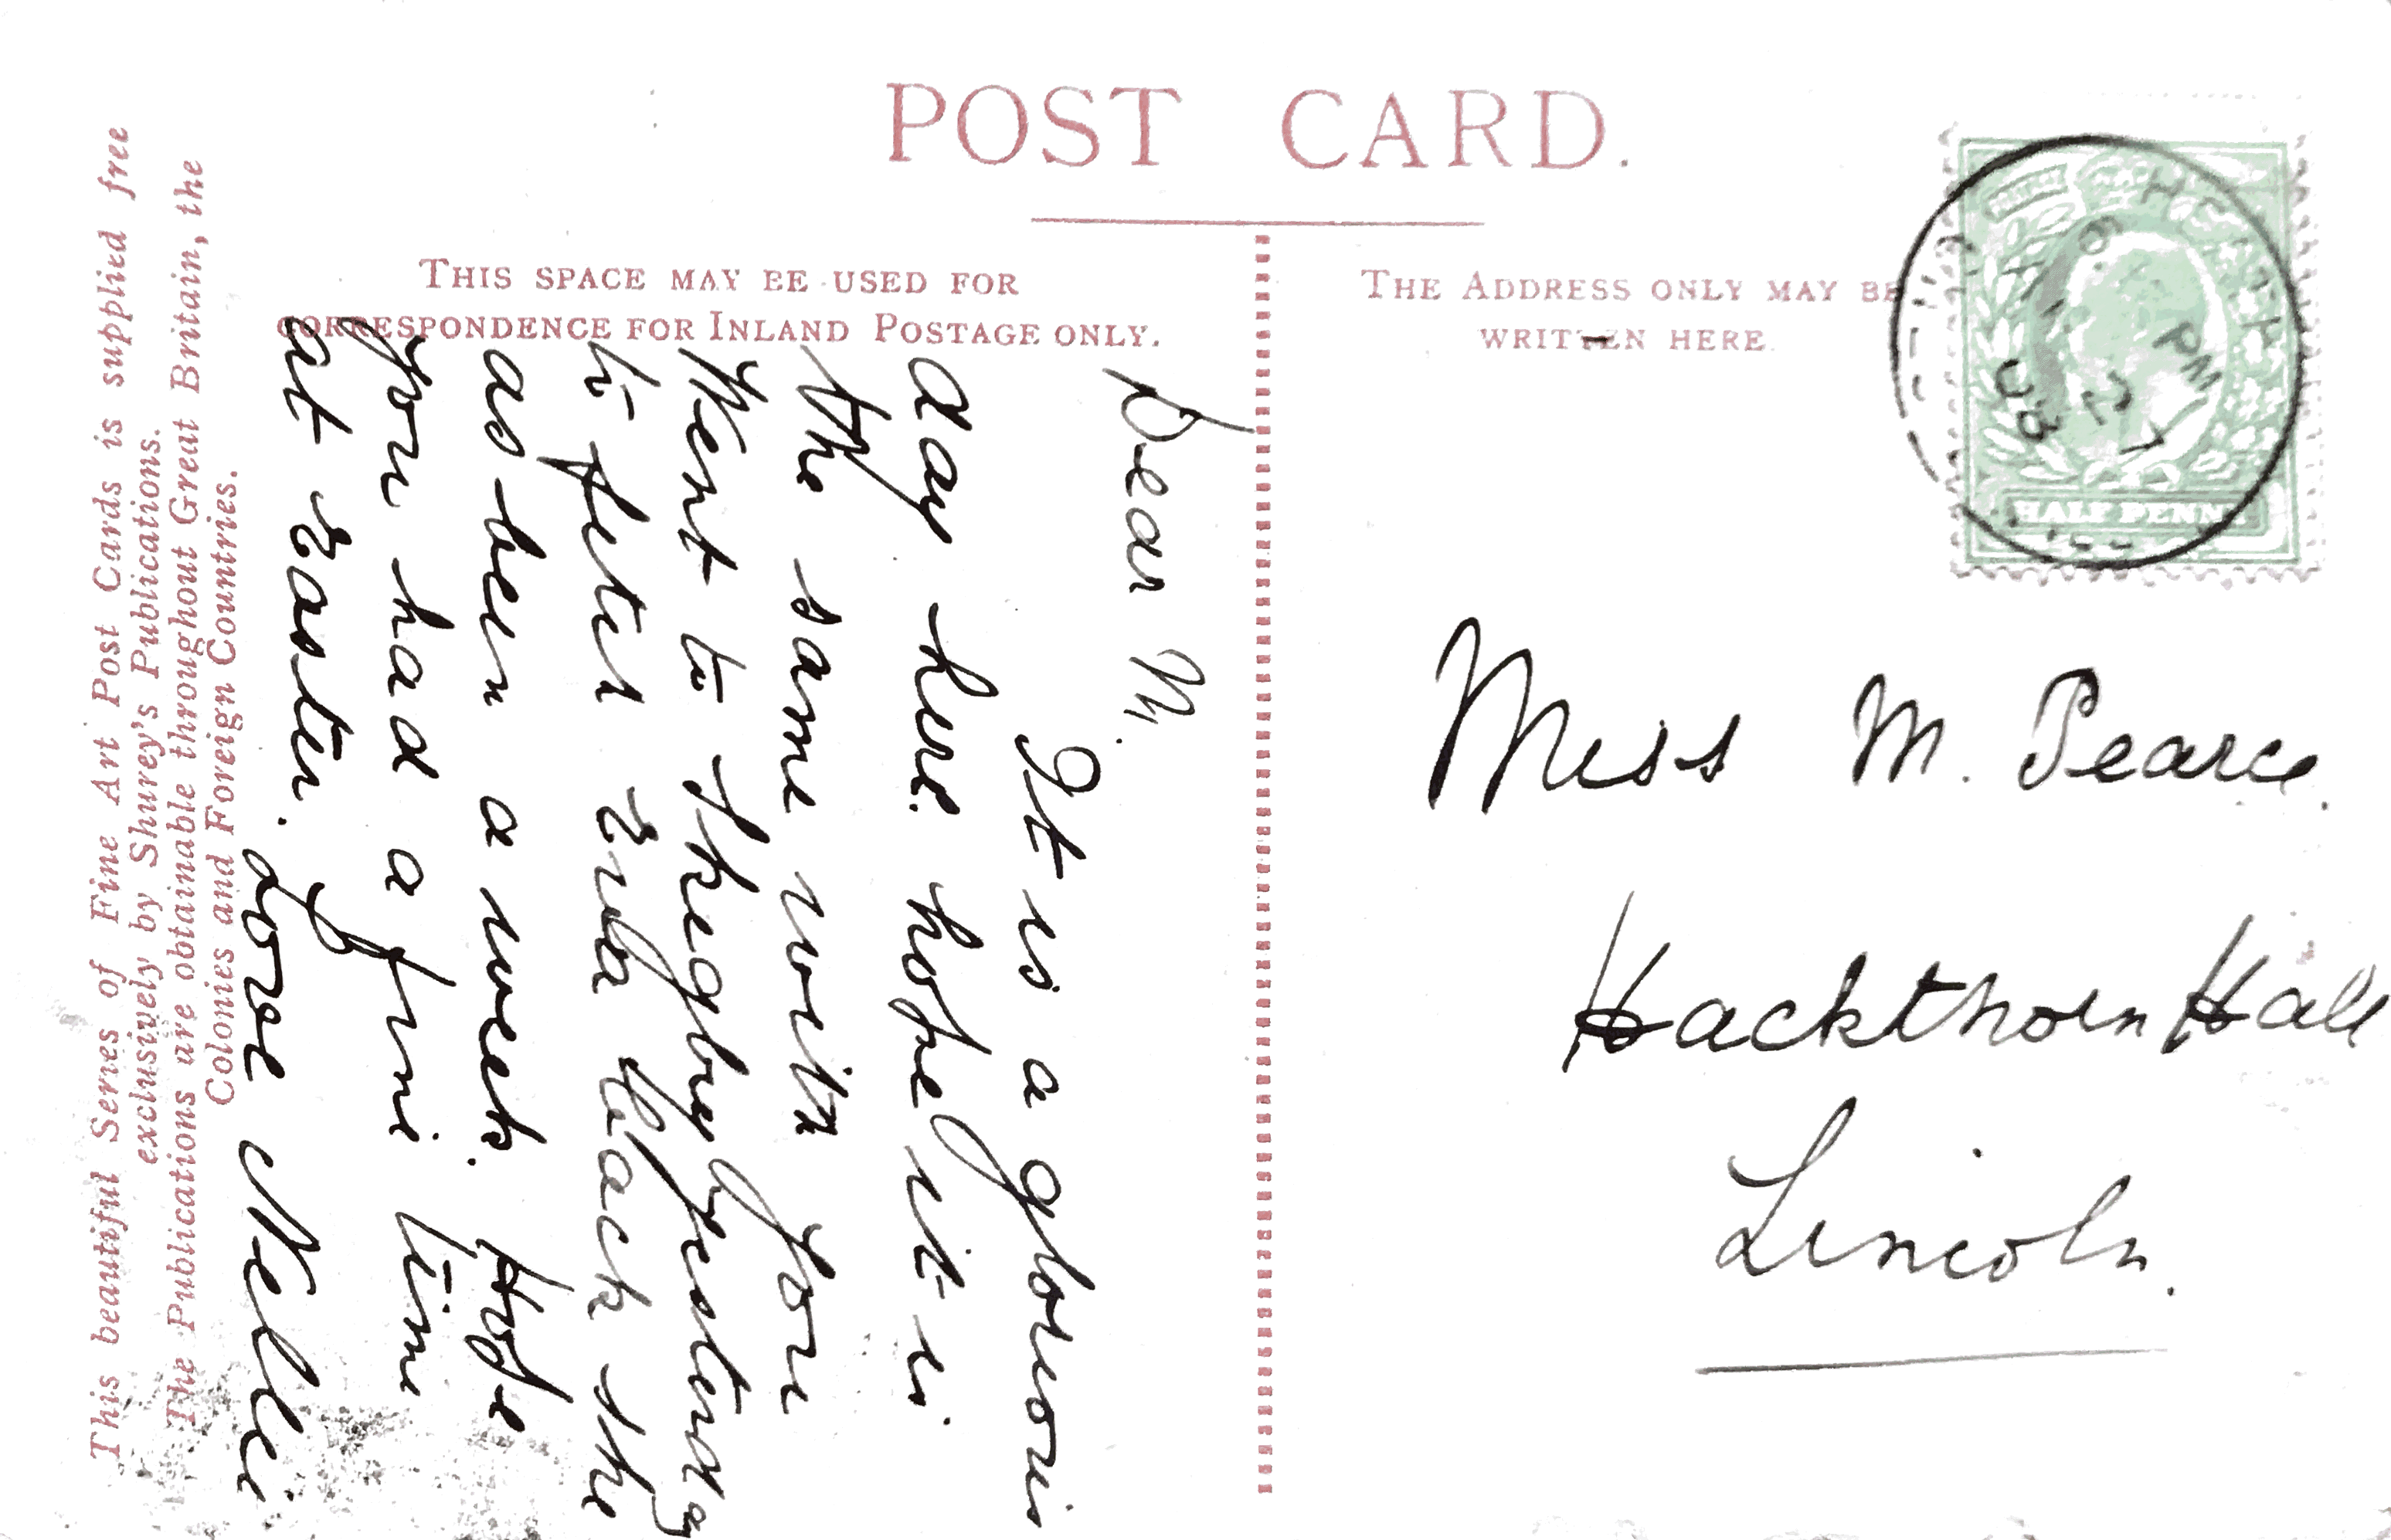 POST CARD.
THIS SPACE MAY BE USED FOR
CORRESPONDENCE FOR INLAND POSTAGE ONLY.
THE ADDRESS ONLY MAY BE
WRITTEN HERE.
This beautiful Series of Fine Art Post Cards is supplied free
exclusively by Shurey's Publications.
The Publications are obtainable throughout Great Britain, the
Colonies and Foreign Countries.
Dear M.
It is a glorious
day here hope it is
the same with you
Went to Skegby yesterday
to fetch back she
as been a week. Hope
you had a fine time
at Easter. Love Nellie
PM
08
HALF PENNY
Miss M. Pearce.
Hackthorn Hall
Lincoln.